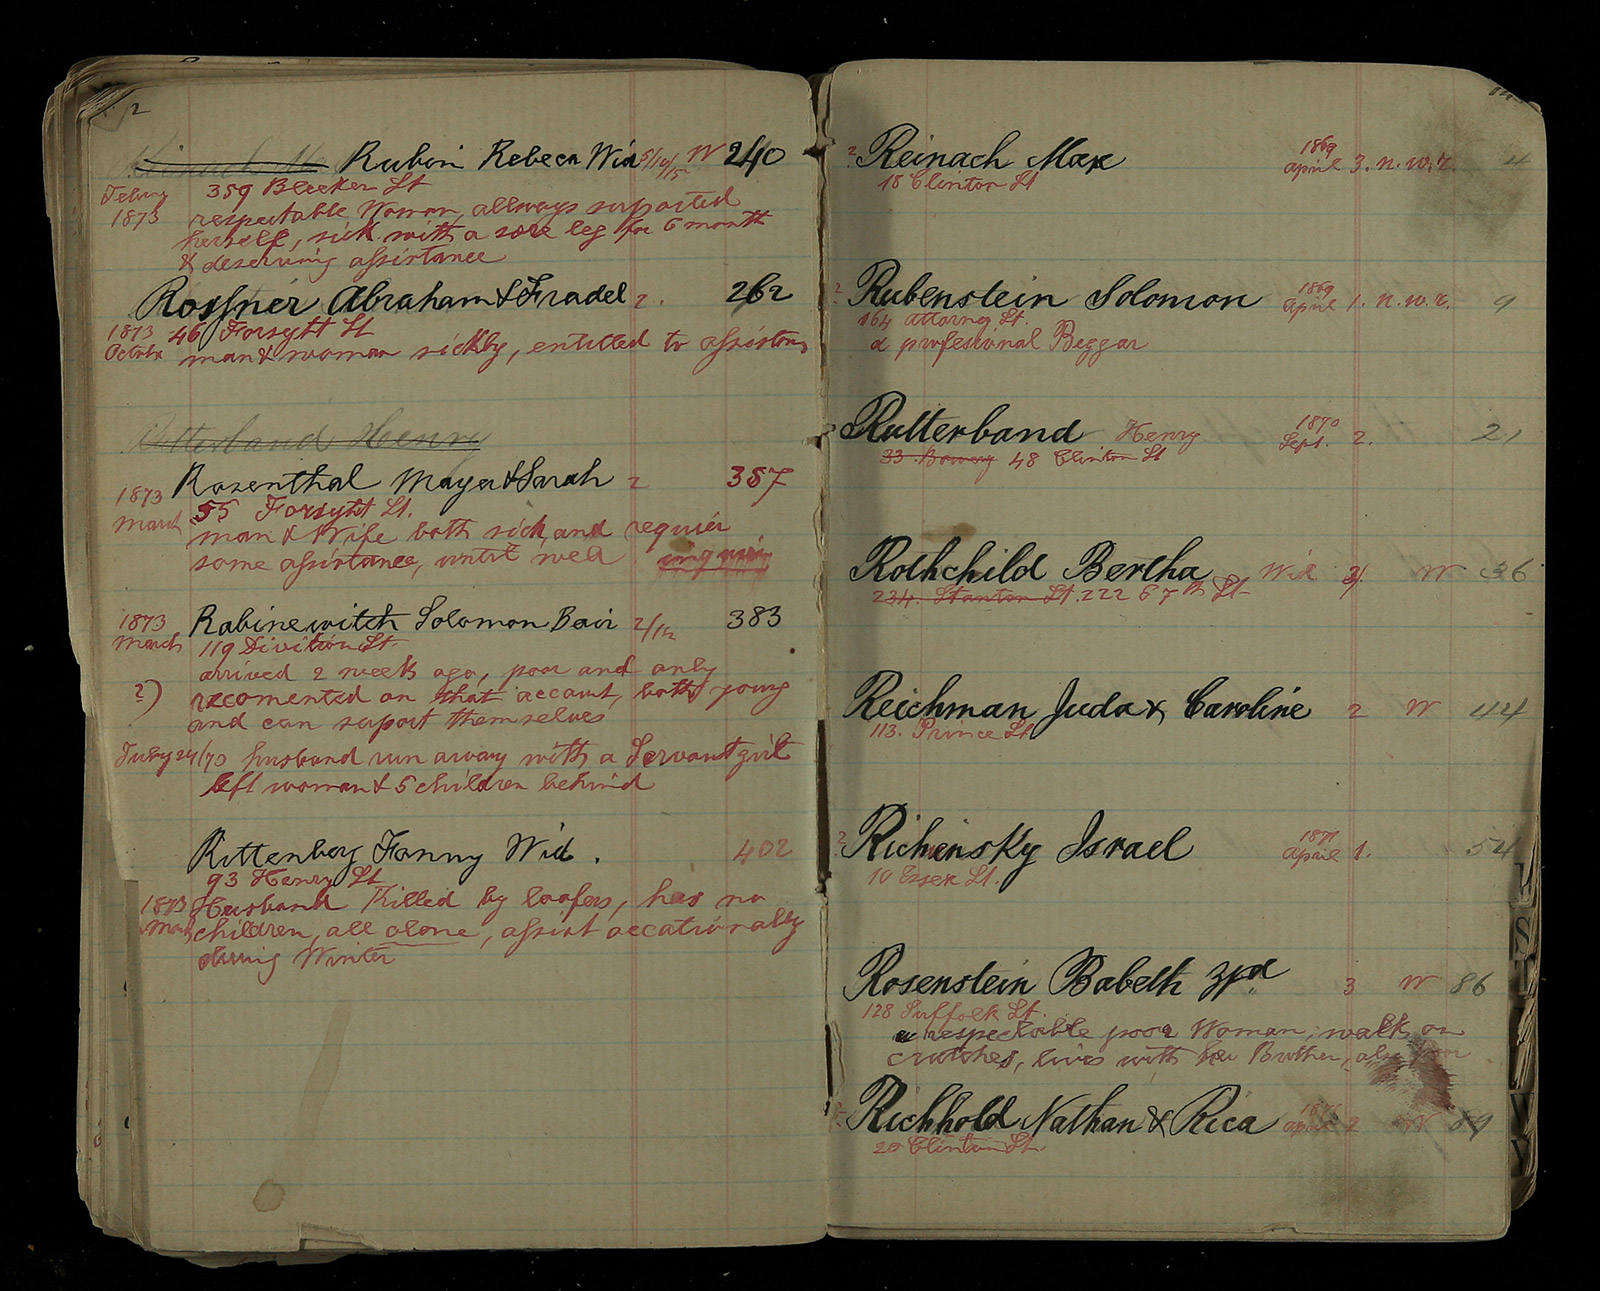 2
Rubin Rebeca Wid W 240
359 Blecker St
Febury
1873 respectable Woman, allways suported
herself, sick with a sore leg for 6 month
& deserving assistance
Rossner Abraham & Fradel 2. 262
1873 46 Forsyth St
Octobr man & woman sickly, entitled to assistanc
Rutterband Henry
Rosenthal Mayer & Sarah 2 357
1873 55 Forsyth St.
March man & Wife both sick, and requier
some assistance, until well
1873 Rabinewitch Solomon Bair 2/12 383
March 119 Division St.
arrived 2 week ago, poor and only
?) recomented on that account, both young
and can suport themselves
July 24/70 husband run away with a Servant girl
left woman & 5 children behind
Rittenberg Fanny Wid. 402
93 Henry St
1873 Husband Killed by loafers, has no
March children, all alone, assist occationally
during Winter
? Reinach Max 1869 april 3. n. w. r. 4
18 Clinton St
? Rubenstein Solomon 1869 april 1. n. w. r. 9
164 attorny St.
a profesional Beggar
Rutterband Henry 1870 Sept. 2. 21
33 Bowery 48 Clinton St
Rothchild Bertha Wid 3/. W 36
234. Stanton St. 222 67th St
Reichman Juda & Caroline 2 W 44
113. Prince St
? Richinsky Israel 1871 april 1. 54
10 Essex St.
Rosenstein Babeth 3 W 86
128 Suffolk St.
a respectable poor Woman, walk on
crutches, livis with her Brother, also poor
Richhold Nathan & Rica 2 W 89
20 Clinton St.
S
T
W
Y